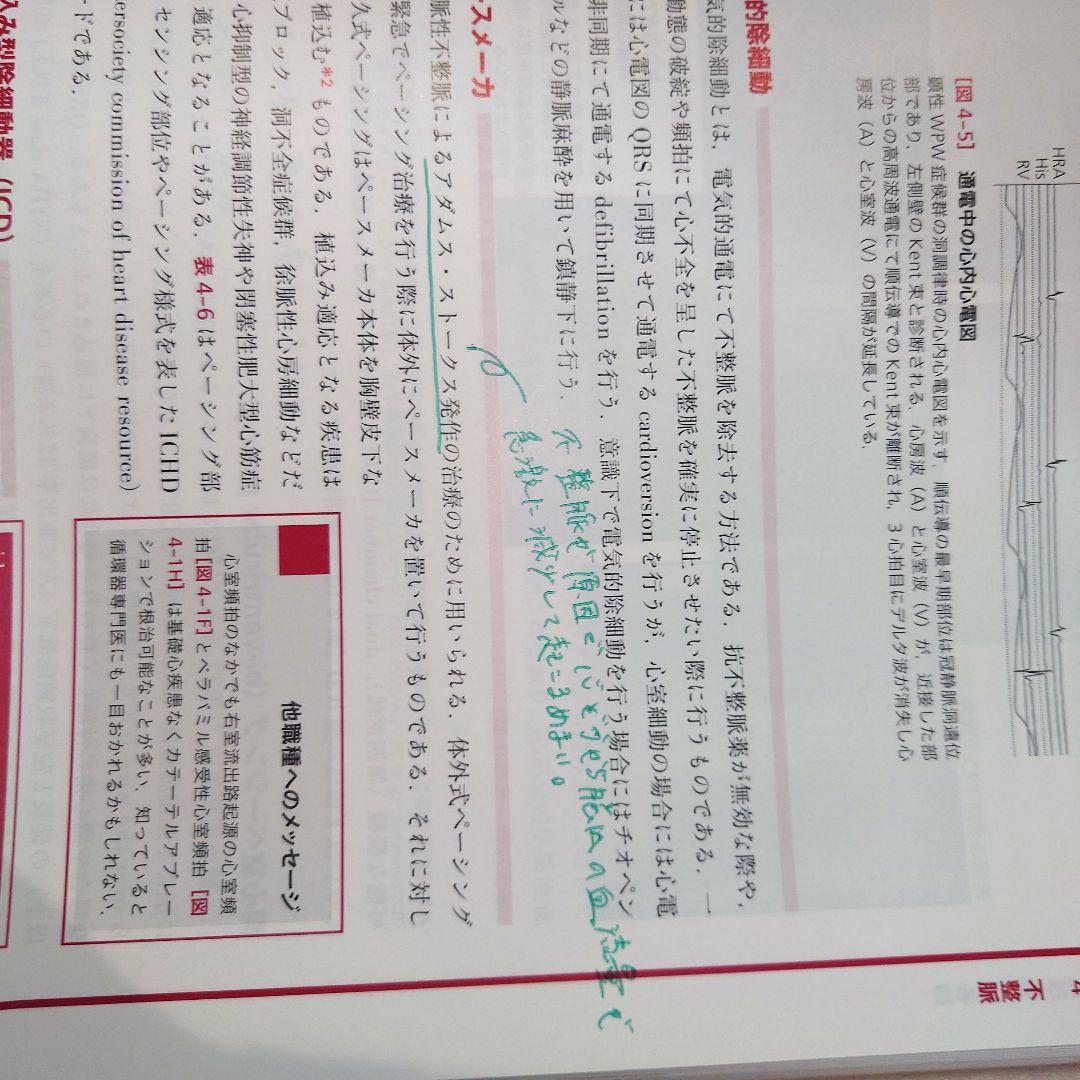 HRA
His
RV
[図 4-5] 通電中の心内心電図
顕性 WPW 症候群の洞調律時の心内心電図を示す．順伝導の最早期部位は冠静脈洞遠位
部であり，左側壁の Kent 束と診断される．心房波（A）と心室波（V）が，近接した部
位からの高周波通電にて順伝導での Kent 束が離断され，3 心拍目にデルタ波が消失し心
房波（A）と心室波（V）の間隔が延長している．
的除細動
気的除細動とは，電気的通電にて不整脈を除去する方法である．抗不整脈薬が無効な際や，
動態の破綻や頻拍にて心不全を呈した不整脈を確実に停止させたい際に行うものである．一
には心電図の QRS に同期させて通電する cardioversion を行うが，心室細動の場合には心電
非同期にて通電する defibrillation を行う．意識下で電気的除細動を行う場合にはチオペン
ルなどの静脈麻酔を用いて鎮静下に行う．
不整脈が原因で心ぞうから脳への血流量が
急激に減少して起こるめまい。
スメーカ
脈性不整脈によるアダムス・ストークス発作の治療のために用いられる．体外式ペーシング
緊急でペーシング治療を行う際に体外にペースメーカを置いて行うものである．それに対し
久式ペーシングはペースメーカ本体を胸壁皮下な
植込む*2 ものである．植込み適応となる疾患は
ブロック，洞不全症候群，徐脈性心房細動などだ
心抑制型の神経調節性失神や閉塞性肥大型心筋症
適応となることがある．表 4-6 はペーシング部
センシング部位やペーシング様式を表した ICHD
ersociety commission of heart disease resource）
ードである．
他職種へのメッセージ
心室頻拍のなかでも右室流出路起源の心室頻
拍［図 4-1F］とベラパミル感受性心室頻拍［図
4-1H］は基礎心疾患なくカテーテルアブレー
ションで根治可能なことが多い．知っていると
循環器専門医にも一目おかれるかもしれない．
込み型除細動器（ICD）
4
不整脈